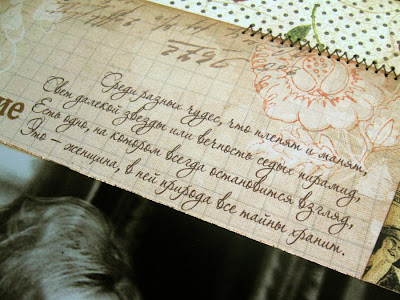 Среди разных чудес, что пленят и манят,
Свет далекой звезды или вечность седых пирамид,
Есть одно, на котором всегда остановится взгляд,
Это – женщина, в ней природа все тайны хранит.